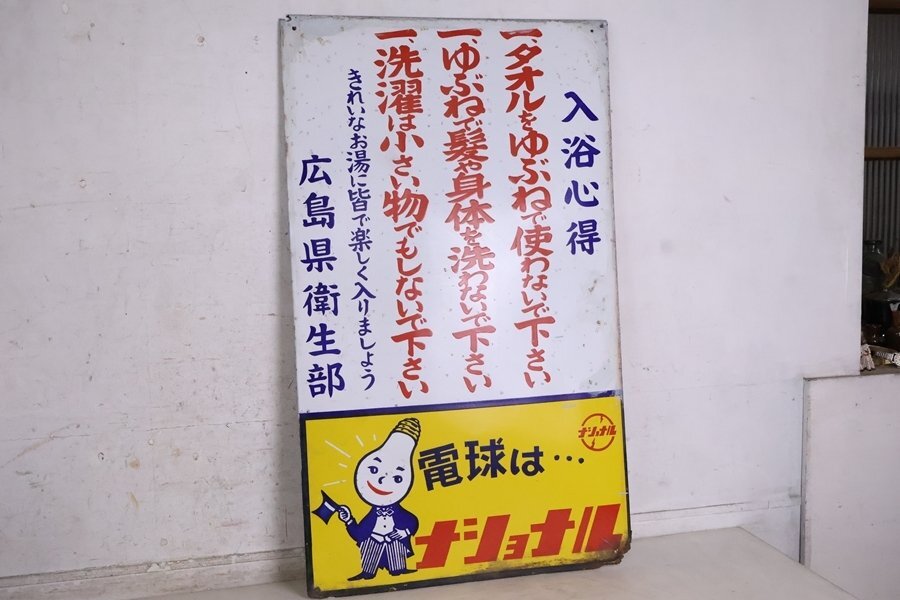 入浴心得
一、タオルをゆぶねで使わないで下さい
一、ゆぶねで髪や身体を洗わないで下さい
一、洗濯は小さい物でもしないで下さい
きれいなお湯に皆で楽しく入りましょう
広島県衛生部
ナショナル
電球は…
ナショナル